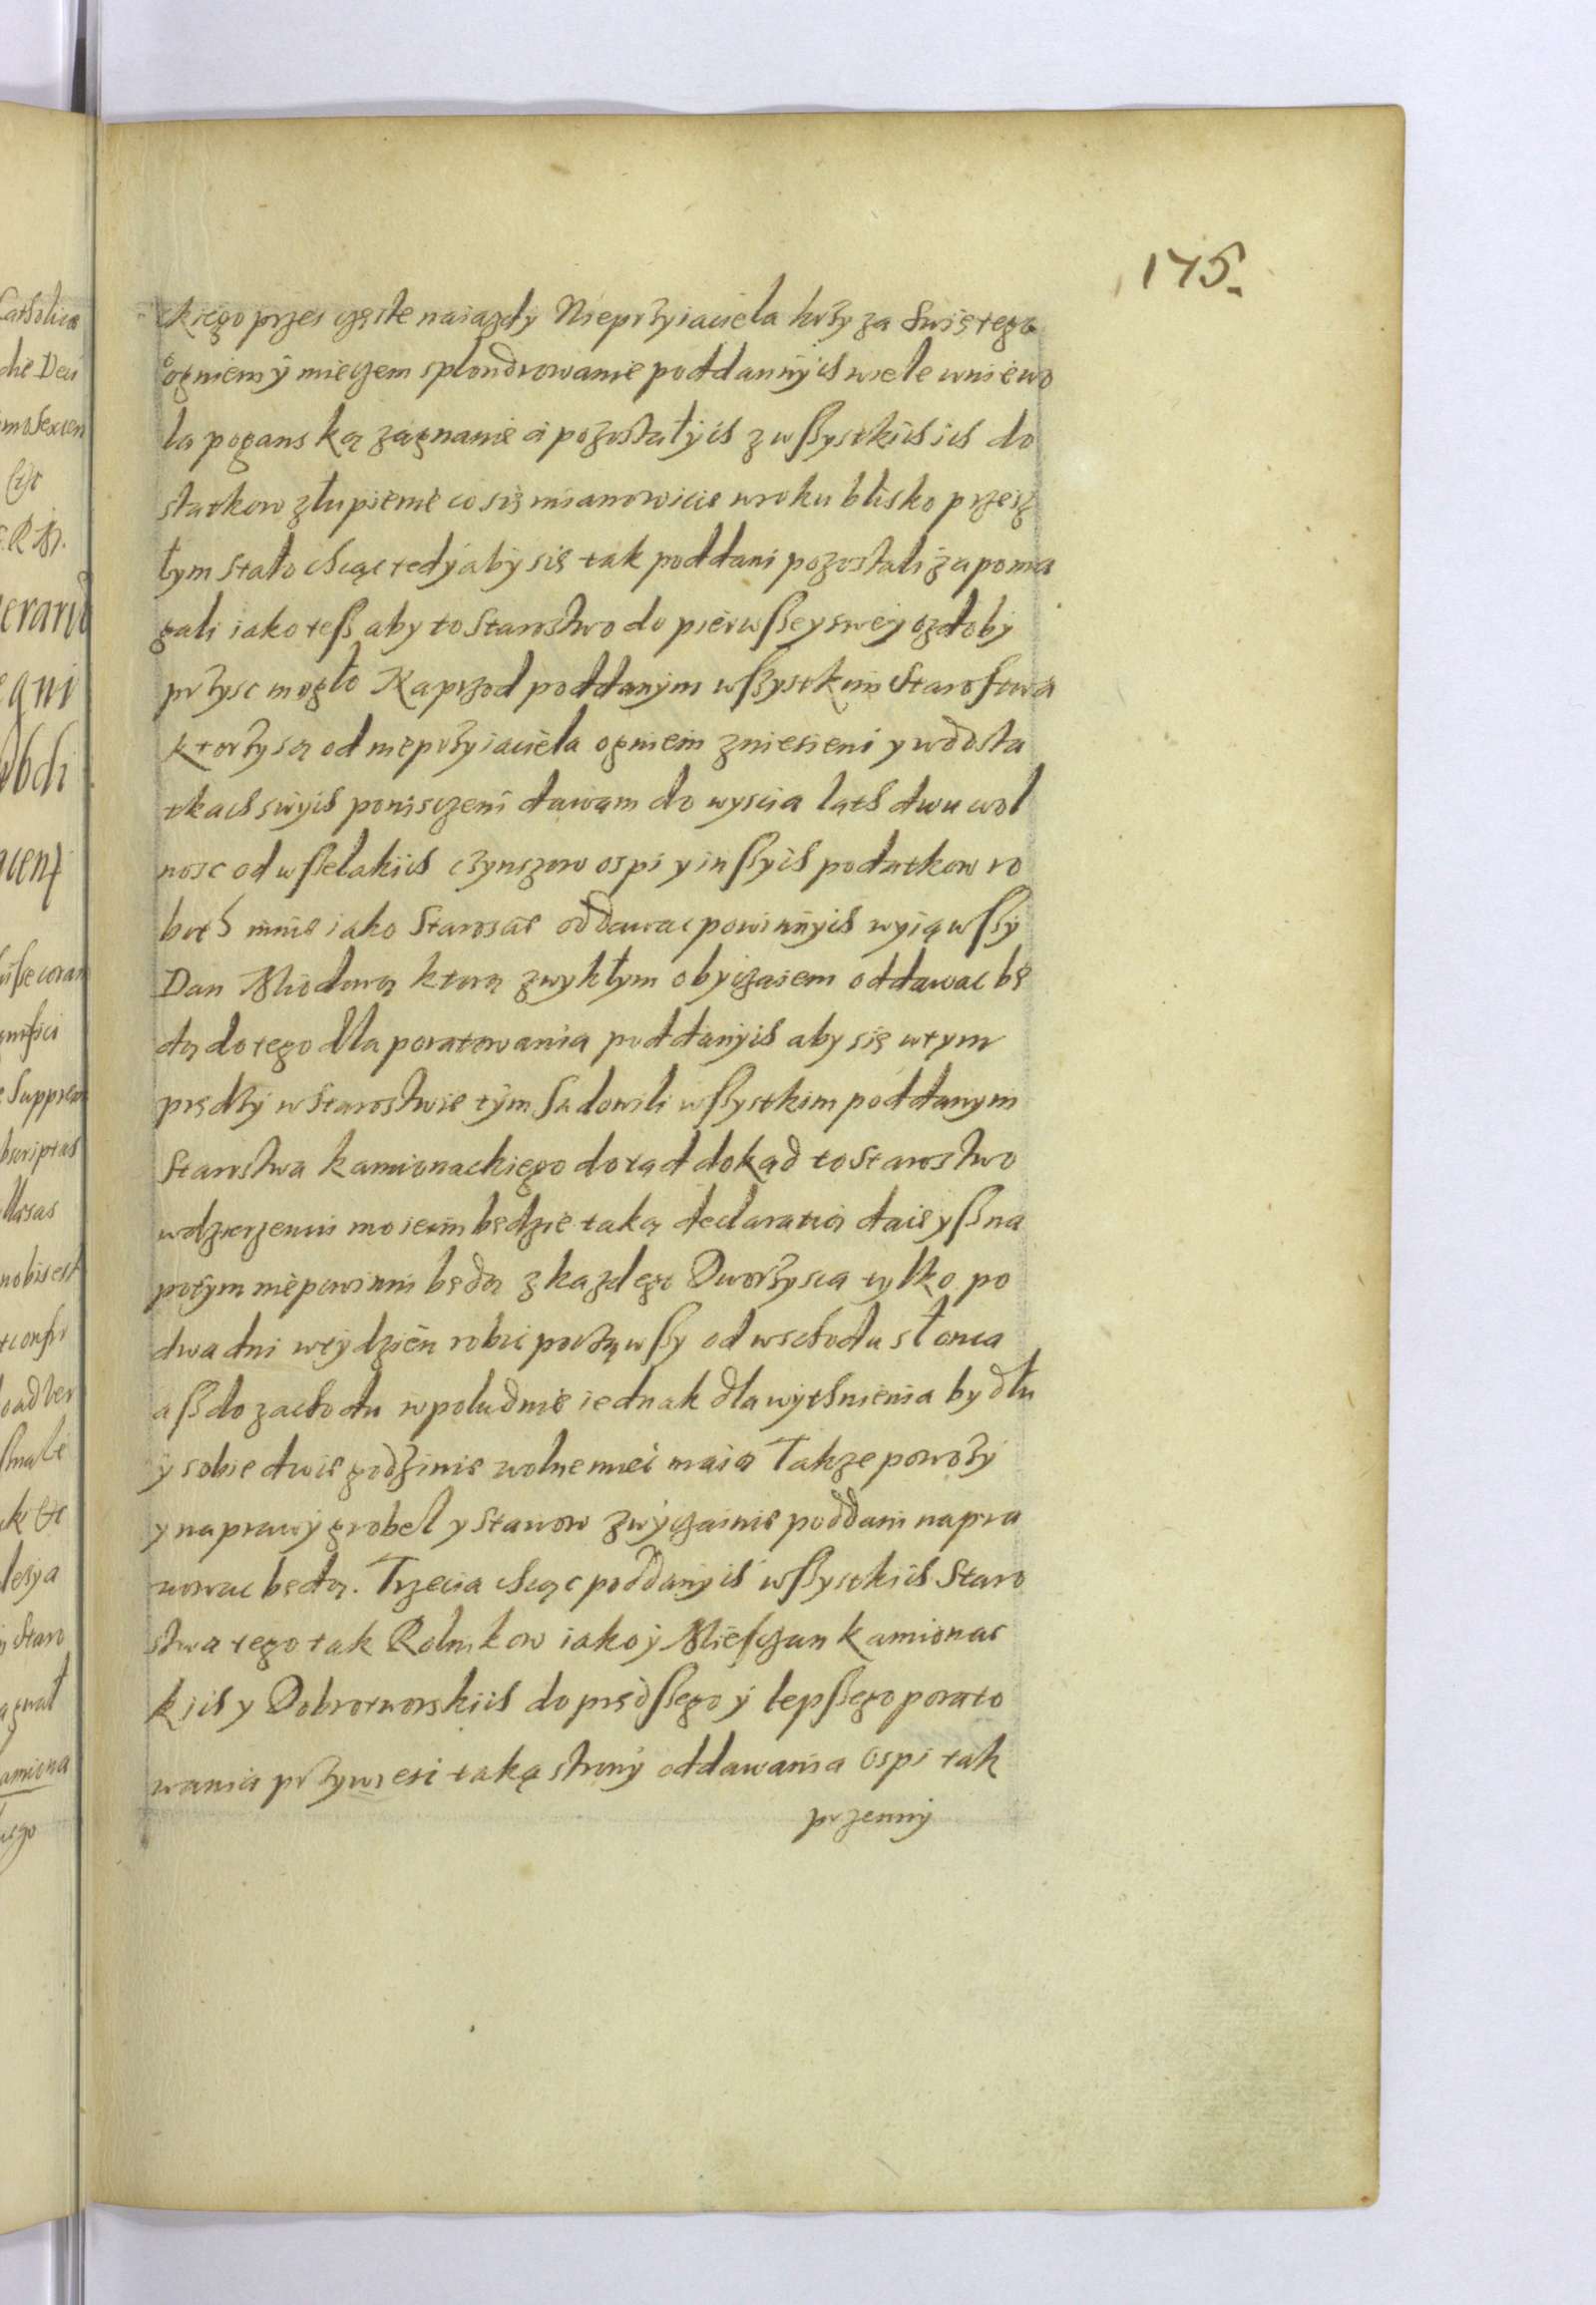 175.
kiego przes częste naiazdy Nieprzyiaciela krzyza Swiętego
ogniem y mieczem splondrowanie poddannych wiele wniewo
la poganską zagnanie a pozostałych z wszystkich ich do
statkow złupienie co się mianowicie wroku blisko przesz
łym stało chcąc tedy aby się tak poddani pozostali zapoma
gali iako tesz aby to Starostwo do pierwszey swey ozdoby
przysc mogło Naprzod poddanym wszystkim Starostwa
ktorzy są od nieprzyiaciela ogniem zniesieni y wdosta
tkach swych poniszczeni dawam do wyscia lath dwu wol
nosc od wszelakich czynszow ospi y inszych podatkow ro
both mnie iako Staroscie oddawac powinnych wyiąwszy
Dan Miodową ktorą zwykłym obyczaiem oddawac bę
dą do tego dla poratowania poddanych aby się wtym
prędzy w Starostwie tym sadowili wszystkim poddanym
Starostwa kamionackiego dotąd dokąd to Starostwo
wdzierzeniu moiem będzie taką declaratią daię ysz na
potym niepowinni będą z kazdego Dworzysca tylko po
dwa dni wtydzien robic począwszy od wschodu słonca
asz do zachodu w poludnie iednak dla wythnienia bydłu
y sobie dwie godzinie wolne miec maią Takze powozy
y naprawy grobel y stawow zwyczainie poddani napra
wowac będą. Trzecia chcąc poddanych wszystkich Staro
stwa tego tak Rolnikow iako y Miesczan kamionac
kich y Dobrotworskich do prędszego y lepszego porato
wania przywiesc taką strony oddawania ospi tak
przenny